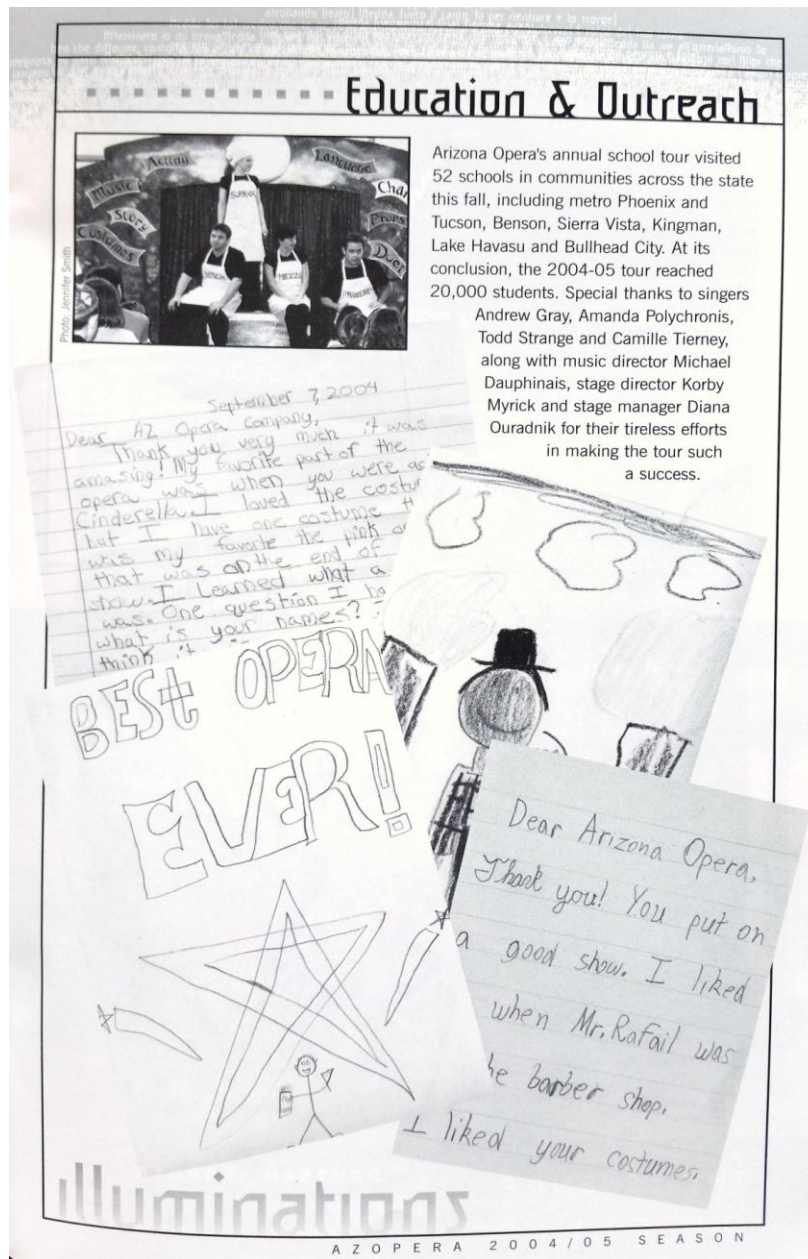 Education & Outreach
Acting
Language
Music
Story
Costumes
Props
Duet
SOPRANO
MEZZO
Photo: Jennifer Smith
Arizona Opera's annual school tour visited
52 schools in communities across the state
this fall, including metro Phoenix and
Tucson, Benson, Sierra Vista, Kingman,
Lake Havasu and Bullhead City. At its
conclusion, the 2004-05 tour reached
20,000 students. Special thanks to singers
Andrew Gray, Amanda Polychronis,
Todd Strange and Camille Tierney,
along with music director Michael
Dauphinais, stage director Korby
Myrick and stage manager Diana
Ouradnik for their tireless efforts
in making the tour such
a success.
September 7, 2004
Dear AZ Opera Company,
Thank you very much it was
amazing! My favorite part of the
opera was when you were as
Cinderella. I loved the
but I have one costume
was my favorite the pink
that was on the end of
show. I learned what a
was. One question I
what is your names?
think it
BESt OPERA
EVER!
Dear Arizona Opera,
Thank you! You put on
a good show. I liked
when Mr. Rafail was
he barber shop.
I liked your costumes.
illuminations
AZOPERA 2004/05 SEASON